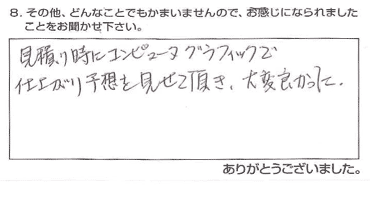 8. その他、どんなことでもかまいませんので、お感じになられました
ことをお聞かせ下さい。
見積り時にコンピュータグラフィックで
仕上がり予想を見せて頂き、大変良かった。
ありがとうございました。